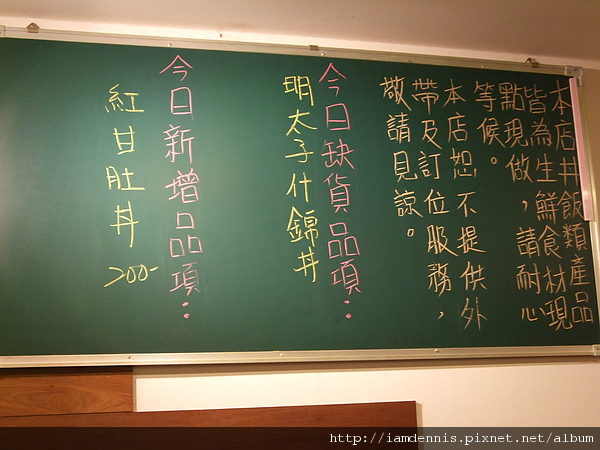 本店丼飯類產品
皆為生鮮食材現
點現做，請耐心
等候。
本店恕不提供外
帶及訂位服務，
敬請見諒。
今日缺貨品項：
明太子什錦丼
今日新增品項：
紅甘肚丼
200-
http://iamdennis.pixnet.net/album